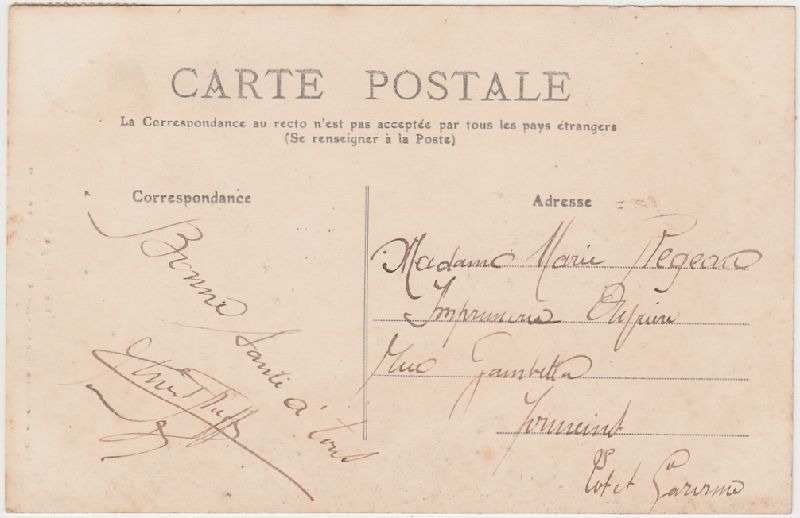 CARTE POSTALE
La Correspondance au recto n'est pas acceptée par tous les pays étrangers
(Se renseigner à la Poste)
Correspondance
Bonne Santé à tous
Adresse
Madame Marie
Imprimerie
Rue Gambetta
Lot et Garonne